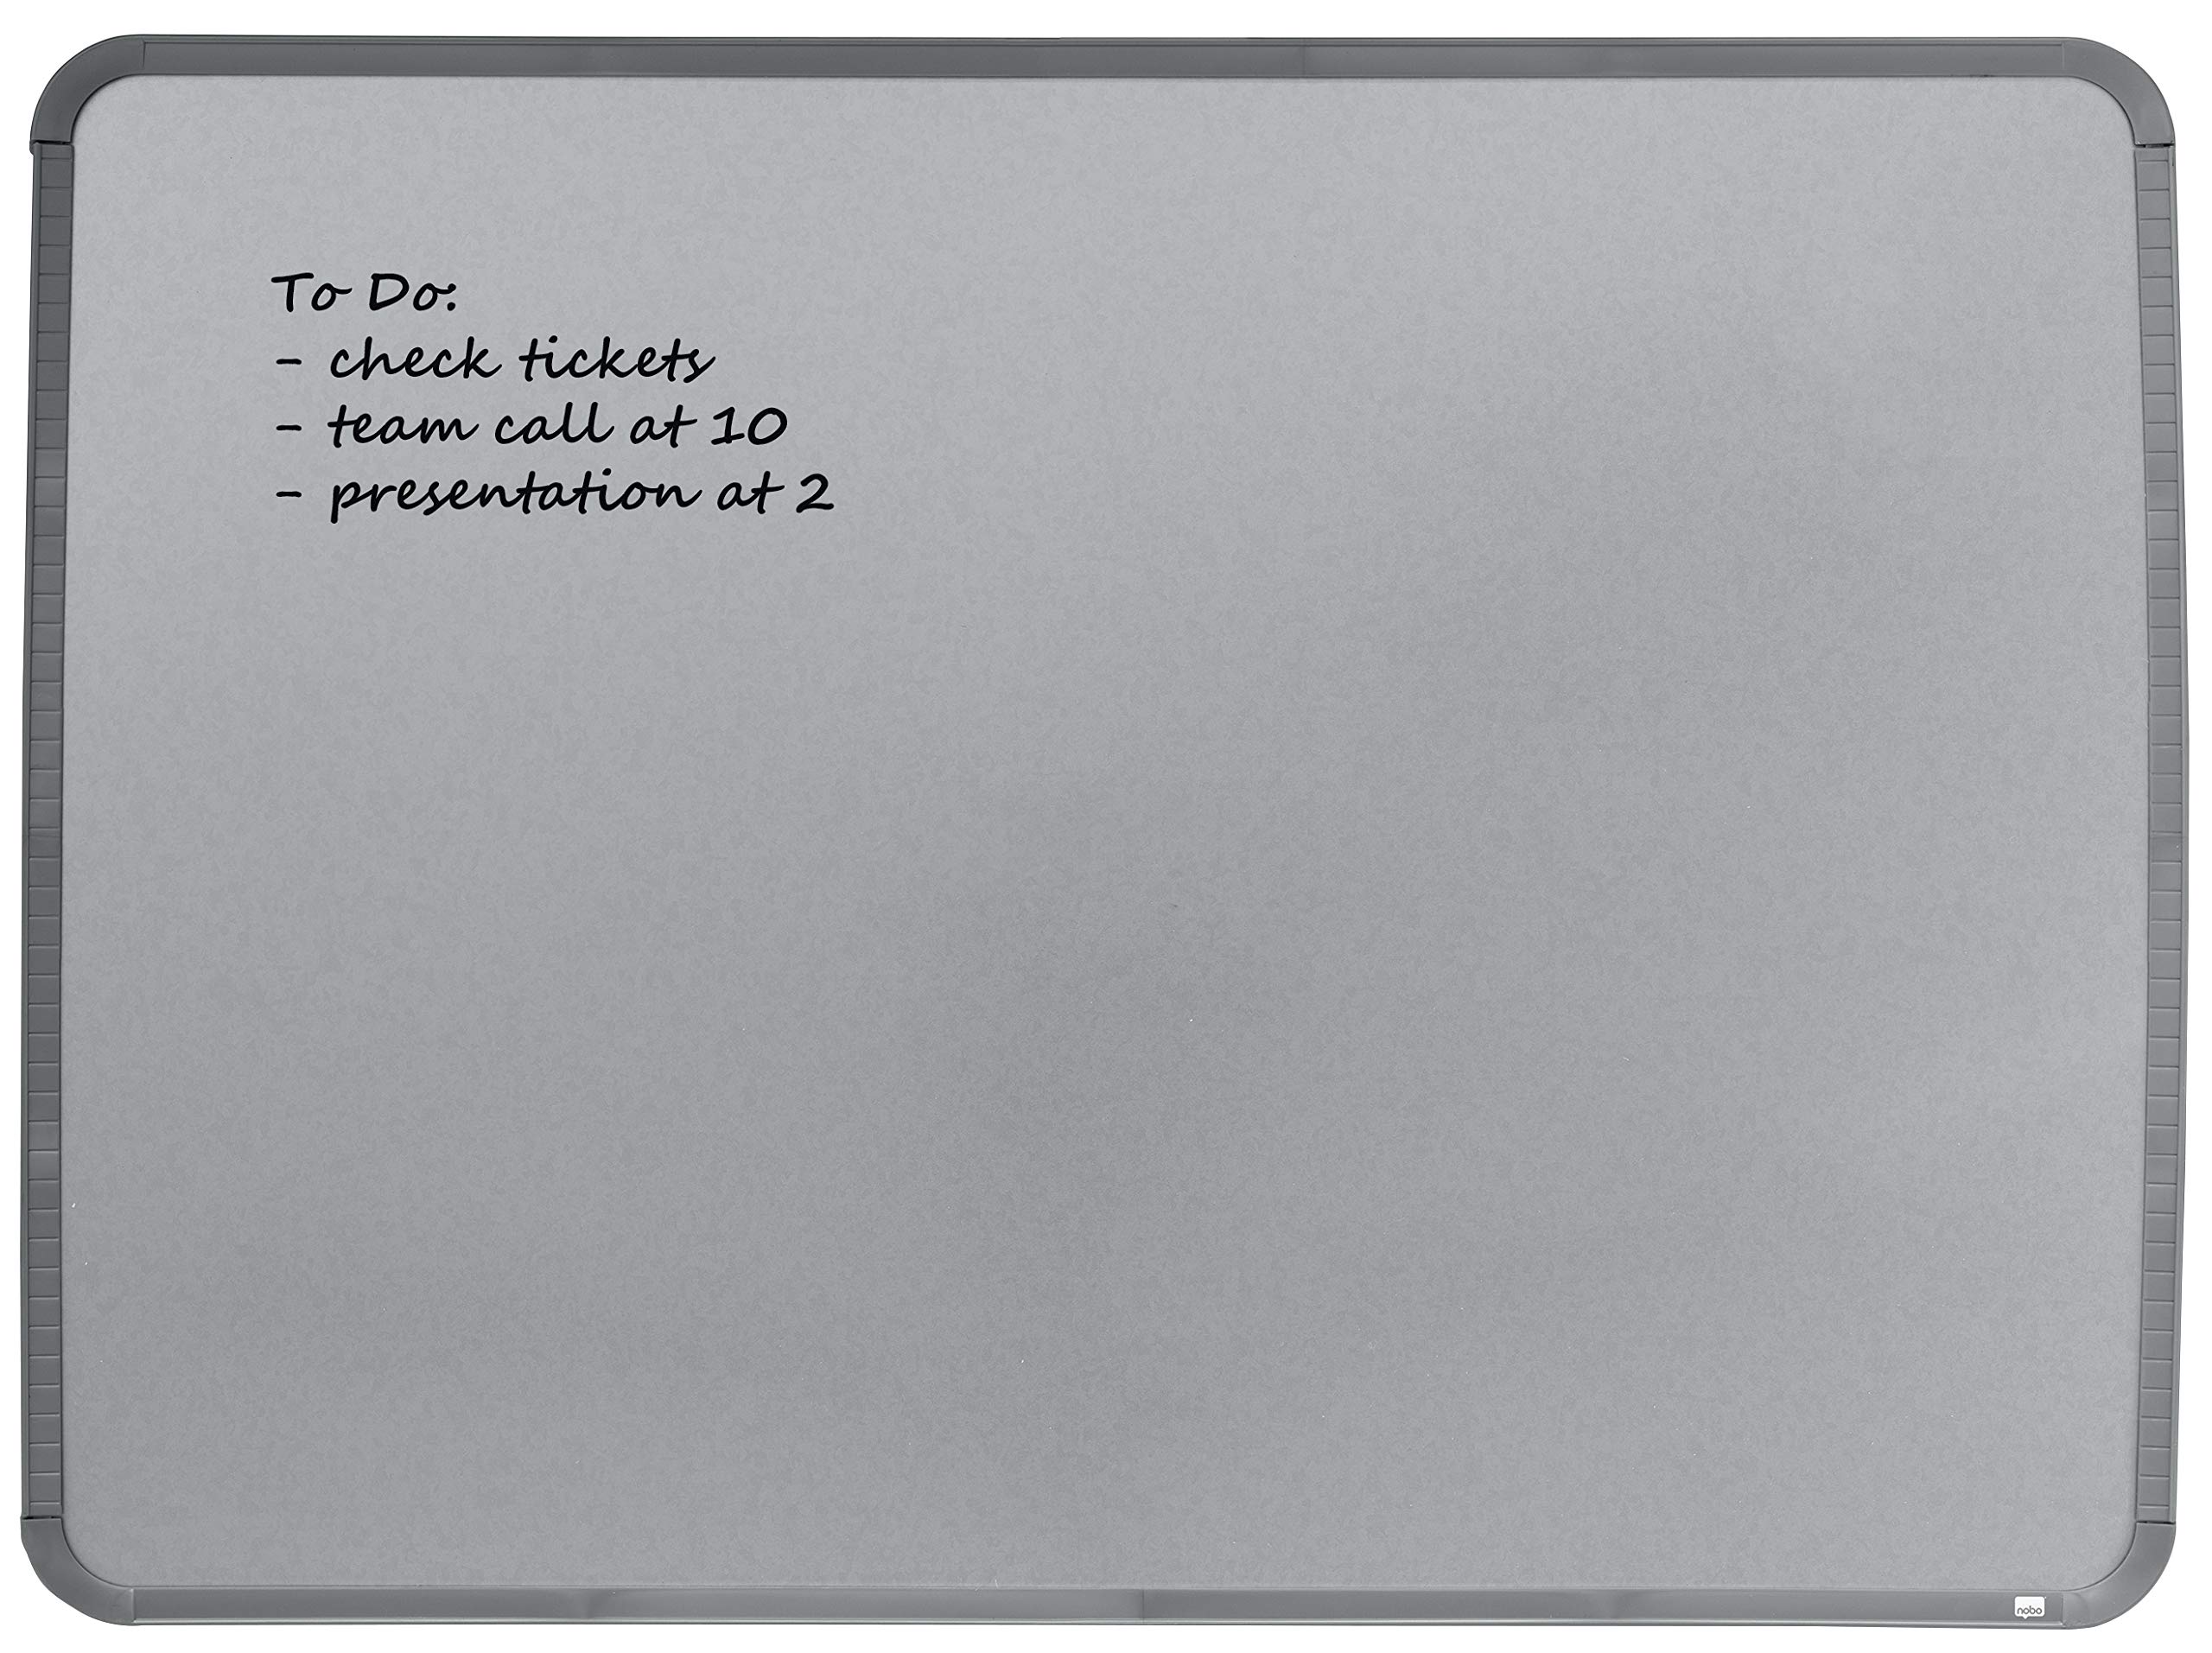 To Do:
- check tickets
- team call at 10
- presentation at 2
nobo